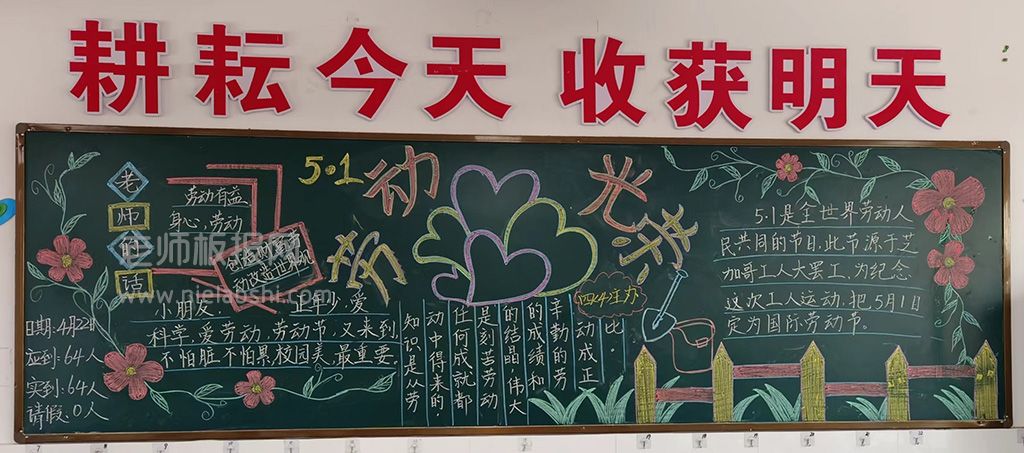 耕耘今天 收获明天
老师的话
劳动有益
身心,劳动
创造财富劳
动改造世界
5·1
劳动光荣
小朋友, 正年少,爱
科学,爱劳动,劳动节,又来到,
不怕脏,不怕累,校园美,最重要。
日期:4月22日
应到:64人
实到:64人
请假:0人
四(4)主办
比。
动成正
辛勤的劳
的成绩和
的结晶,伟大
是刻苦劳动
任何成就都
动中得来的
知识是从劳
5·1是全世界劳动人
民共同的节日,此节源于芝
加哥工人大罢工,为纪念
这次工人运动,把5月1日
定为国际劳动节。
老师板报网
www.pielaoshi.com